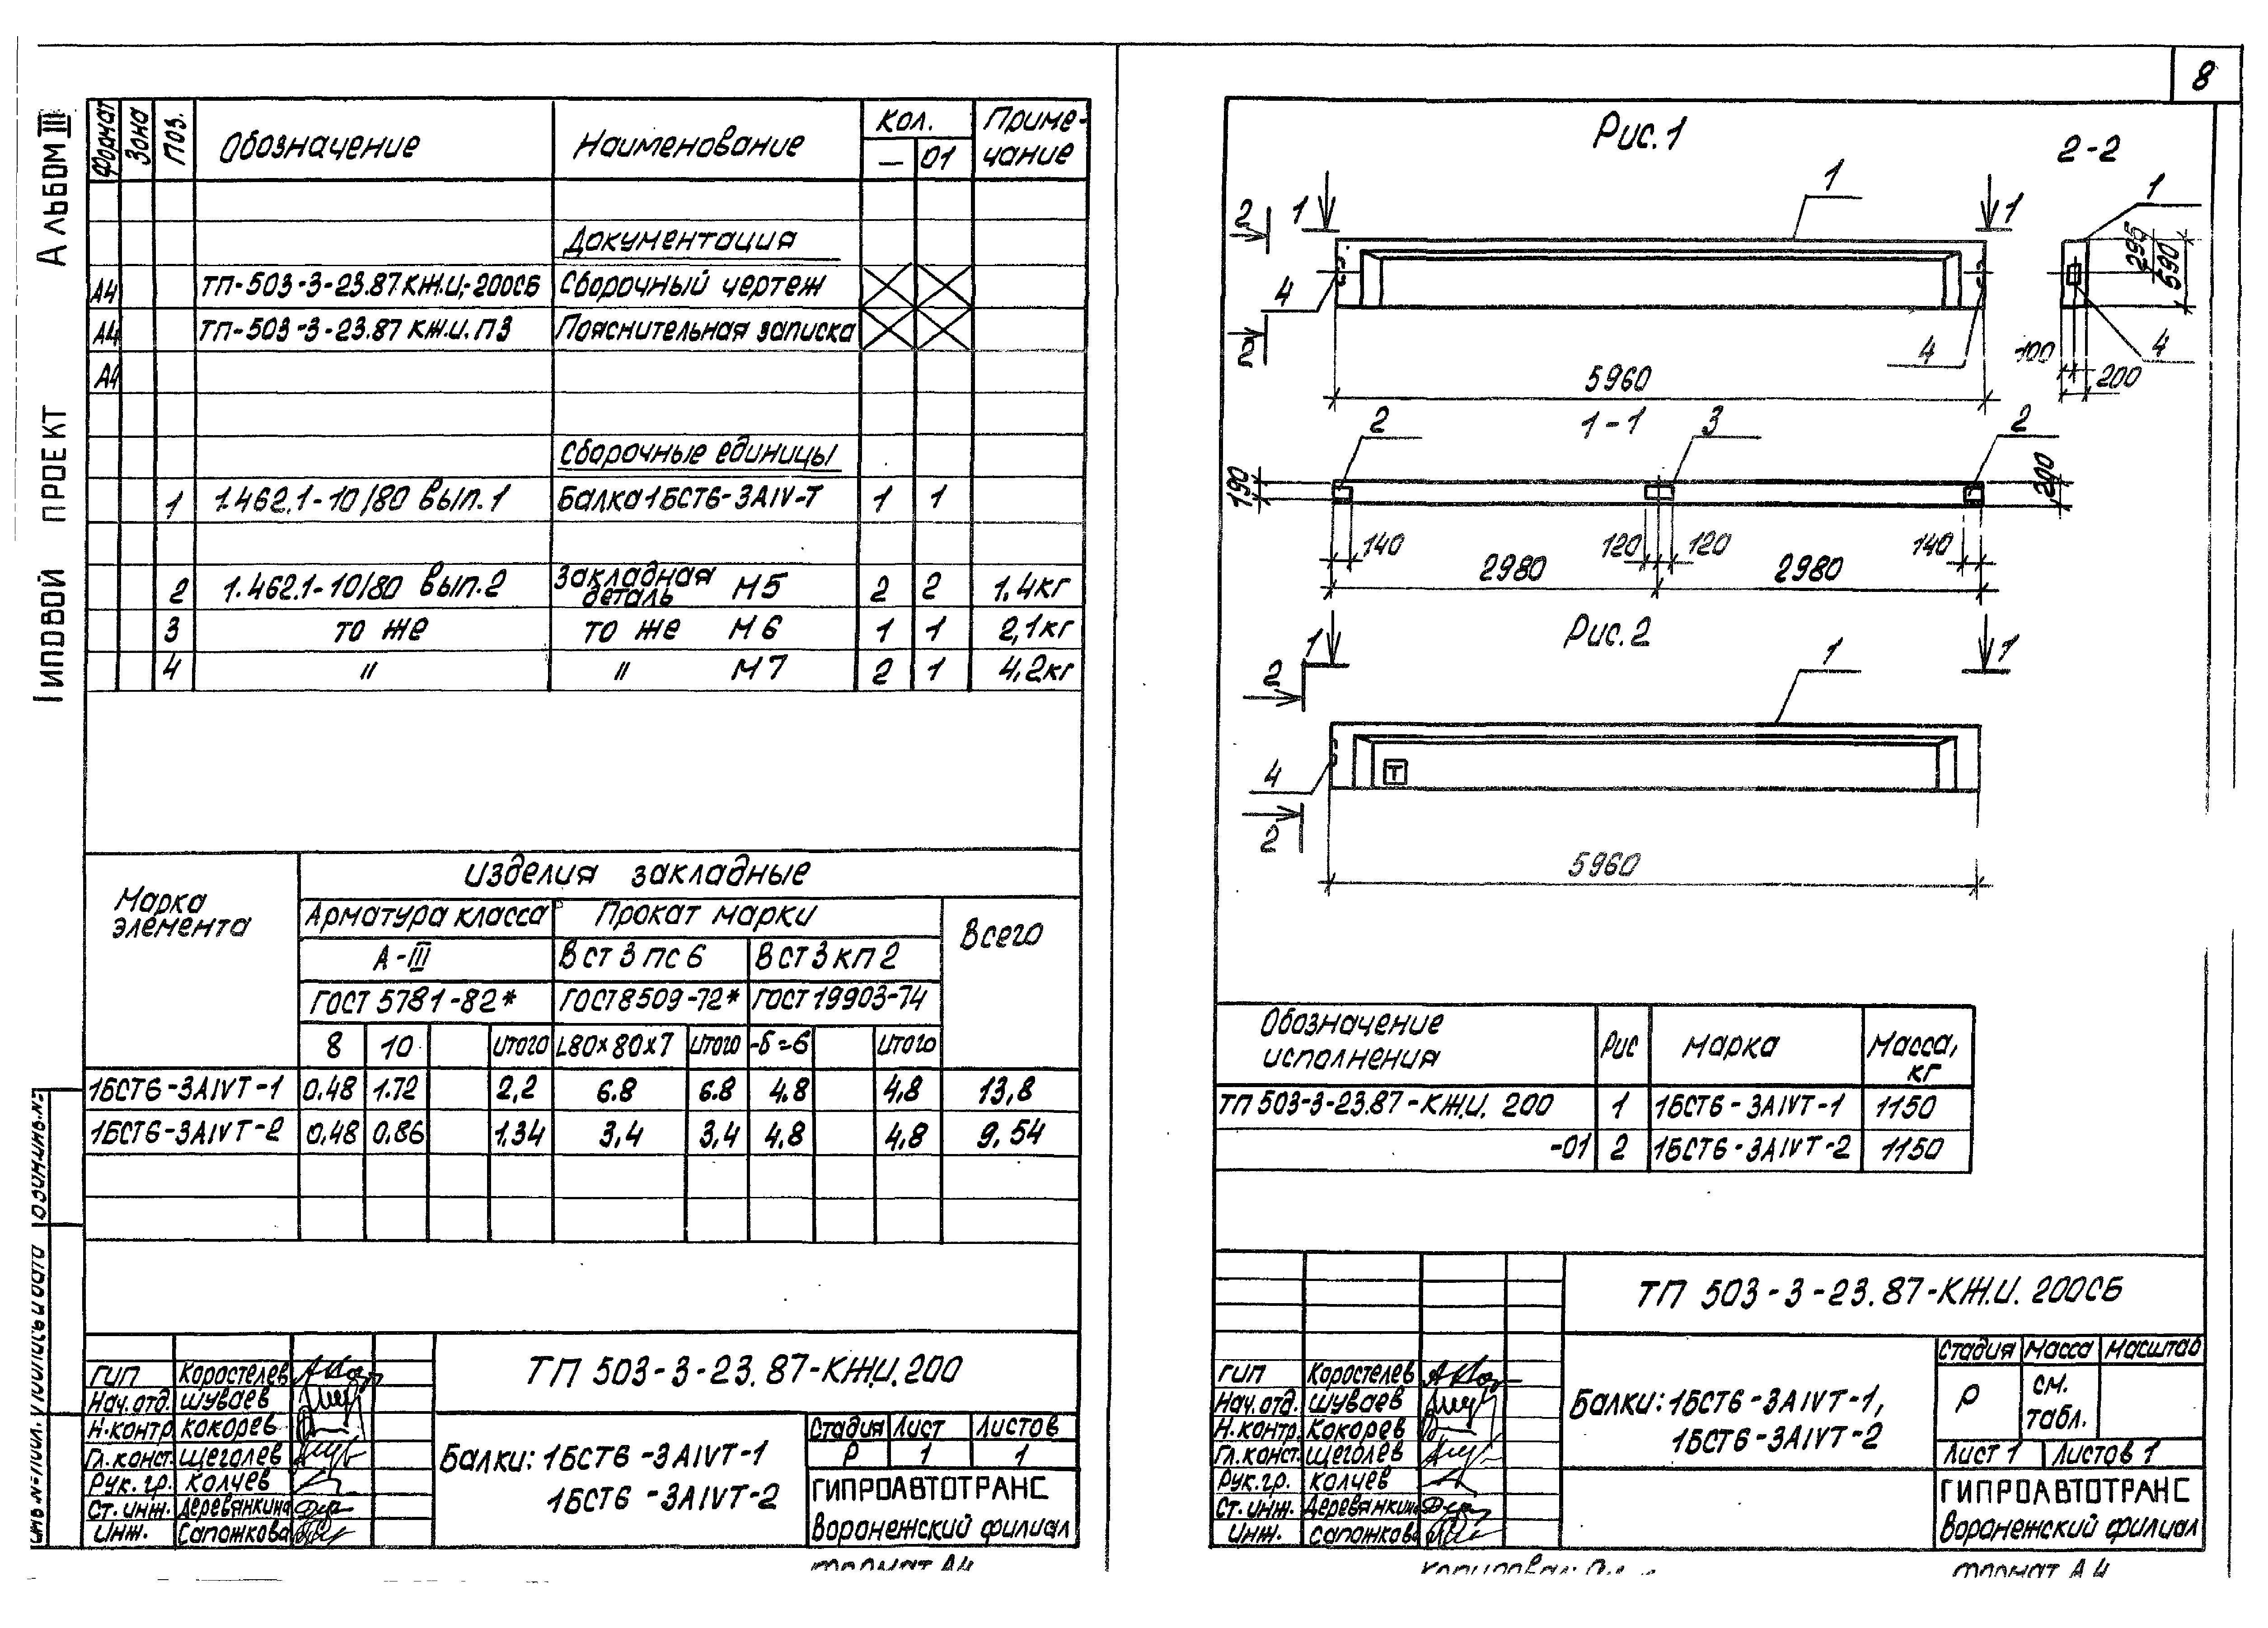 8
Альбом III
Типовой проект
Формат Зона Поз. Обозначение Наименование Кол. Приме-
— 01 чание
Документация
А4 ТП-503-3-23.87 КЖ.И.-200СБ Сборочный чертеж
А4 ТП-503-3-23.87 КЖ.И. ПЗ Пояснительная записка
А4
Сборочные единицы
1 1.462.1-10/80 вып.1 Балка 1БСТ6-3АIV-Т 1 1
2 1.462.1-10/80 вып.2 Закладная деталь М5 2 2 1.4кг
3 то же то же М6 1 1 2,1кг
4 " " М7 2 1 4.2кг
Марка элемента
Изделия закладные
Арматура класса Прокат марки Всего
А-III Вст3пс6 Вст3кп2
ГОСТ 5781-82* ГОСТ8509-72* ГОСТ 19903-74
8 10 Итого L80×80×7 Итого -δ=6 Итого
1БСТ6-3АIVТ-1 0.48 1.72 2,2 6.8 6.8 4.8 4,8 13,8
1БСТ6-3АIVТ-2 0,48 0,86 1.34 3,4 3,4 4,8 4,8 9,54
ГИП Коростелев
Нач.отд. Шуваев
Н.контр. Кокорев
Гл.конст. Щеголев
Рук.гр. Колчев
Ст.инж. Деревянкина
Инж. Сапожкова
ТП 503-3-23.87-КЖ.И.200
Балки: 1БСТ6-3АIVТ-1
1БСТ6-3АIVТ-2
Стадия Лист Листов
Р 1 1
ГИПРОАВТОТРАНС
Воронежский филиал
Формат А4
Рис.1
2-2
2 1 1 1 1
4 295 590
2 4 100 4
5960 200
1-1
2 3 2
190 200
140 120 120 140
2980 2980
Рис.2
1 1 1
2
4 Т
2
5960
Обозначение исполнения Рис Марка Масса, кг
ТП 503-3-23.87-КЖ.И. 200 1 1БСТ6-3АIVТ-1 1150
-01 2 1БСТ6-3АIVТ-2 1150
ТП 503-3-23.87-КЖ.И. 200СБ
ГИП Коростелев
Нач.отд. Шуваев
Н.контр. Кокорев
Гл.конст. Щеголев
Рук.гр. Колчев
Ст.инж. Деревянкина
Инж. Сапожкова
Балки: 1БСТ6-3АIVТ-1,
1БСТ6-3АIVТ-2
Стадия Масса Масштаб
Р см. табл.
Лист 1 Листов 1
ГИПРОАВТОТРАНС
Воронежский филиал
Формат А4